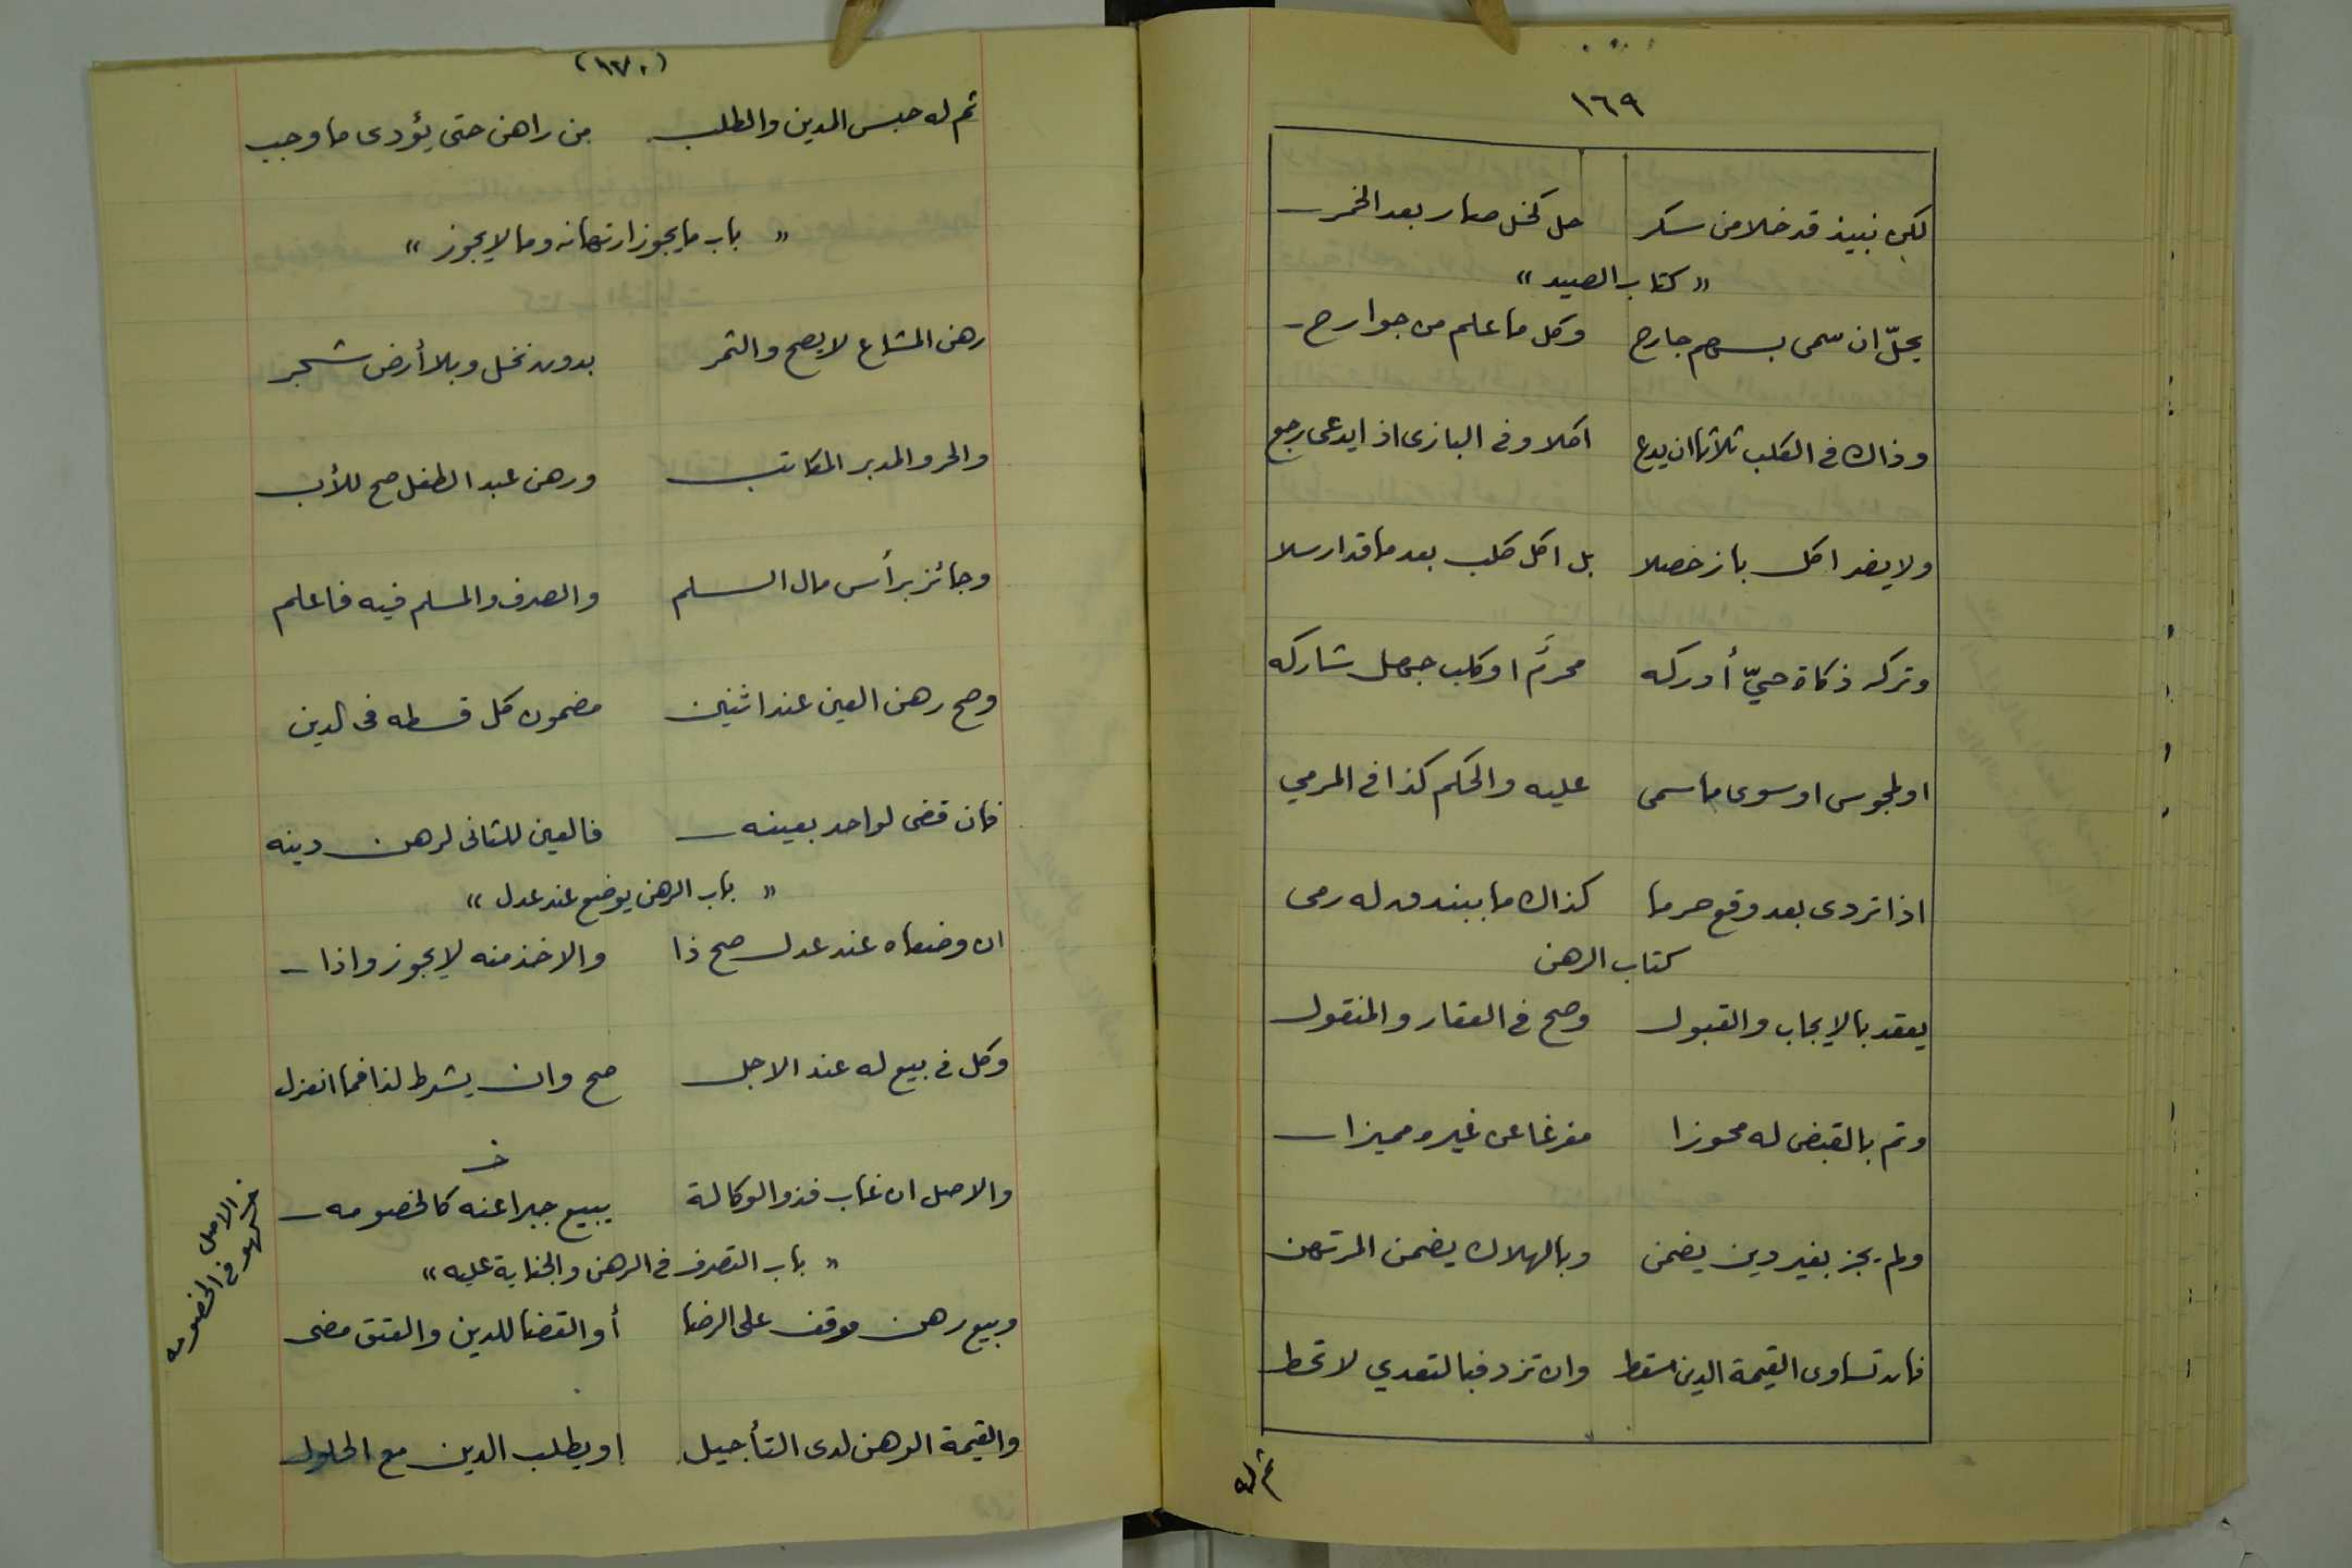 ١٦٩
لكن نبيذ قد خلا من سكر حل كخل صار بعد الخمر
« كتاب الصيد »
يحلّ ان سمى بسهم جارح وكل ما علم من جوارح
وذاك فى الكلب ثلاثا ان يدع اكلا وفى البازى اذا يدعى رجع
ولا يضر اكل باز خصلا بل اكل كلب بعد ما قد ارسلا
وتركه ذكاة حيّ أدركه محرم او كلب جهل شاركه
او لمجوس او سوى ما سمى عليه والحكم كذا فى المرمي
اذا تردى بعد وقع حرما كذاك ما ببندق له رمى
كتاب الرهن
يعقد بالايجاب والقبول وصح فى العقار والمنقول
وتم بالقبض له محوزا مفرغا عن غير ومميزا
ولم يجز بغير دين يضمن وبالهلاك يضمن المرتهن
فان تساوى القيمة الدين سقط وان تزد فبالتعدي لا تحط
ثم له
(١٧٠)
ثم له حبس المدين والطلب من راهن حتى يؤدى ما وجب
« باب ما يجوز ارتهانه وما لا يجوز »
رهن المشاع لا يصح والثمر بدون نخل وبلا أرض شجر
والحر والمدبر المكاتب ورهن عبد الطفل صح للأب
وجائز برأس مال السلم والصرف والمسلم فيه فاعلم
وصح رهن العين عند اثنين مضمون كل قسطه فى الدين
فان قضى لواحد بعينه فالعين للثانى لرهن دينه
« باب الرهن يوضع عند عدل »
ان وضعاه عند عدل صح ذا والاخذ منه لا يجوز واذا
وكل فى بيع له عند الاجل صح وان يشرط لذا فما انعزل
خ
والاصل ان غاب فذو الوكالة يبيع جبرا عنه كالخصومه
خ الاصل
كهو فى الخصومه
« باب التصرف فى الرهن والجناية عليه »
وبيع رهن موقف على الرضا أو القضا للدين والعتق مضى
والقيمة الرهن لدى التأجيل او يطلب الدين مع الحلول